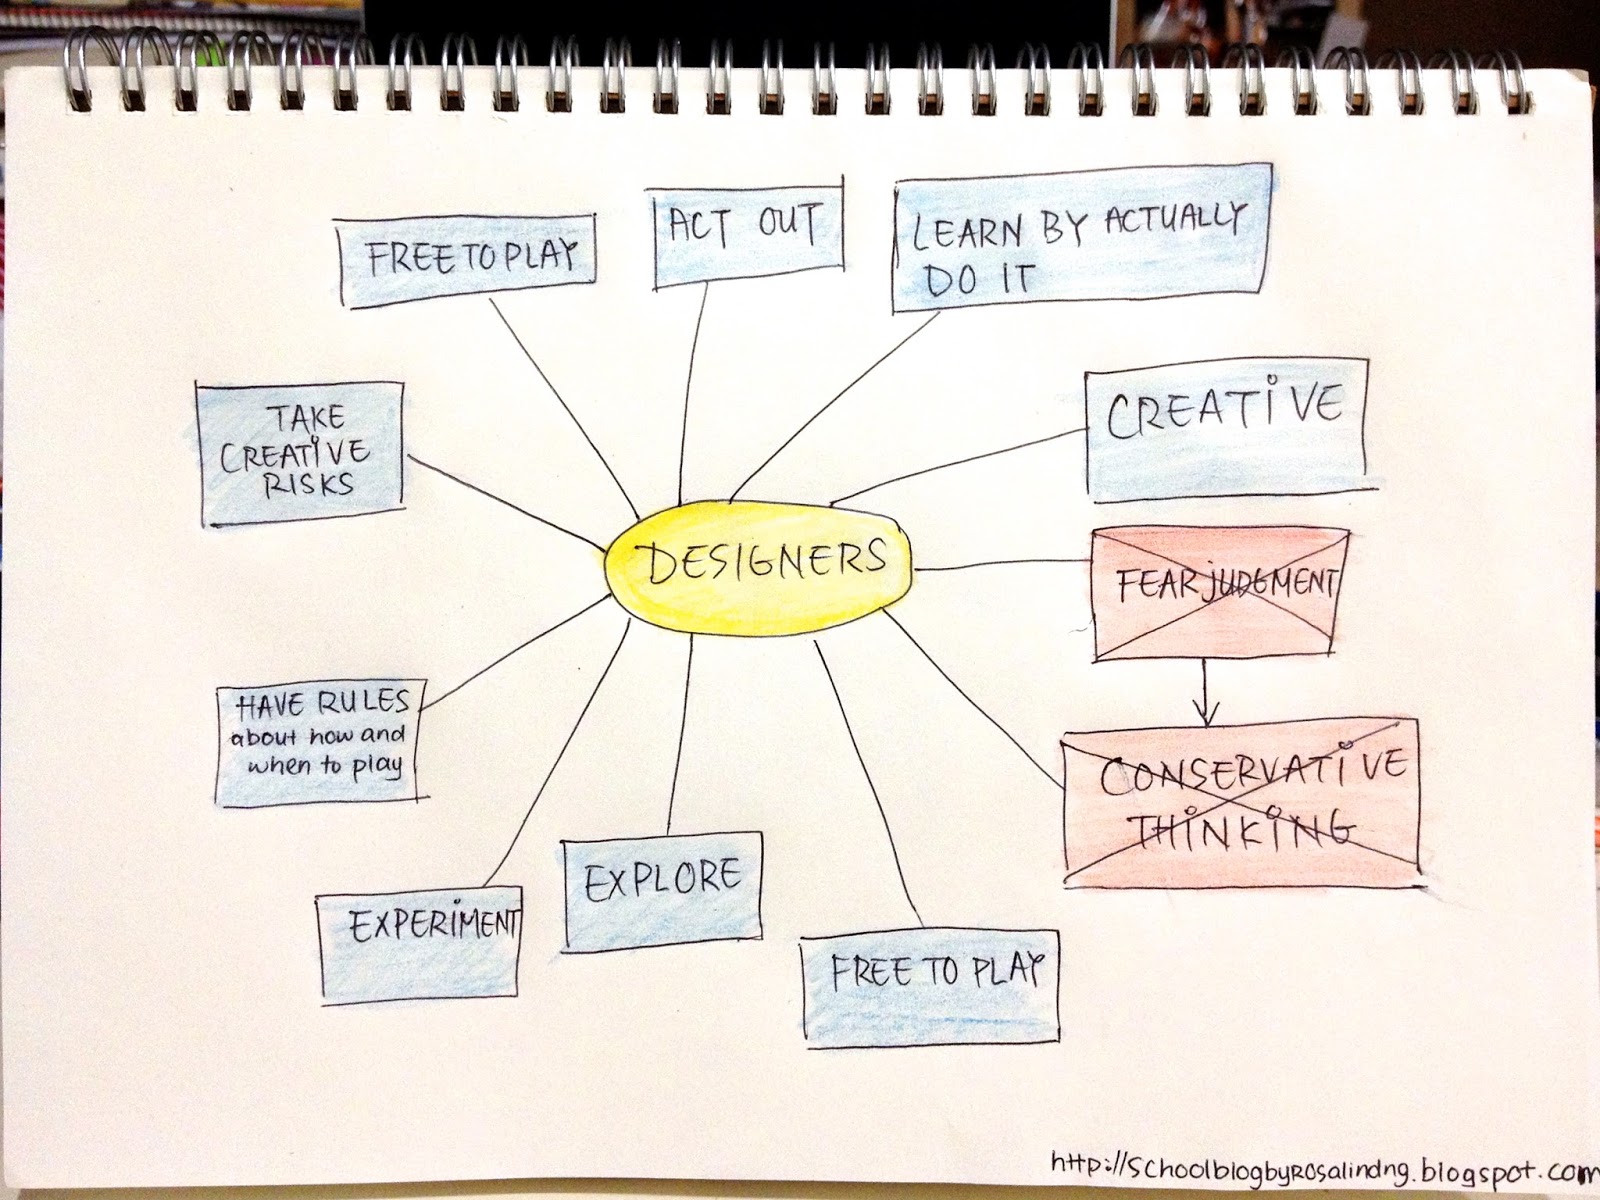 FREE TO PLAY
ACT OUT
LEARN BY ACTUALLY
DO IT
TAKE
CREATIVE
RISKS
CREATIVE
DESIGNERS
FEAR JUDGMENT
HAVE RULES
about how and
when to play
CONSERVATIVE
THINKING
EXPERIMENT
EXPLORE
FREE TO PLAY
http://schoolblogbyrosalindng.blogspot.com